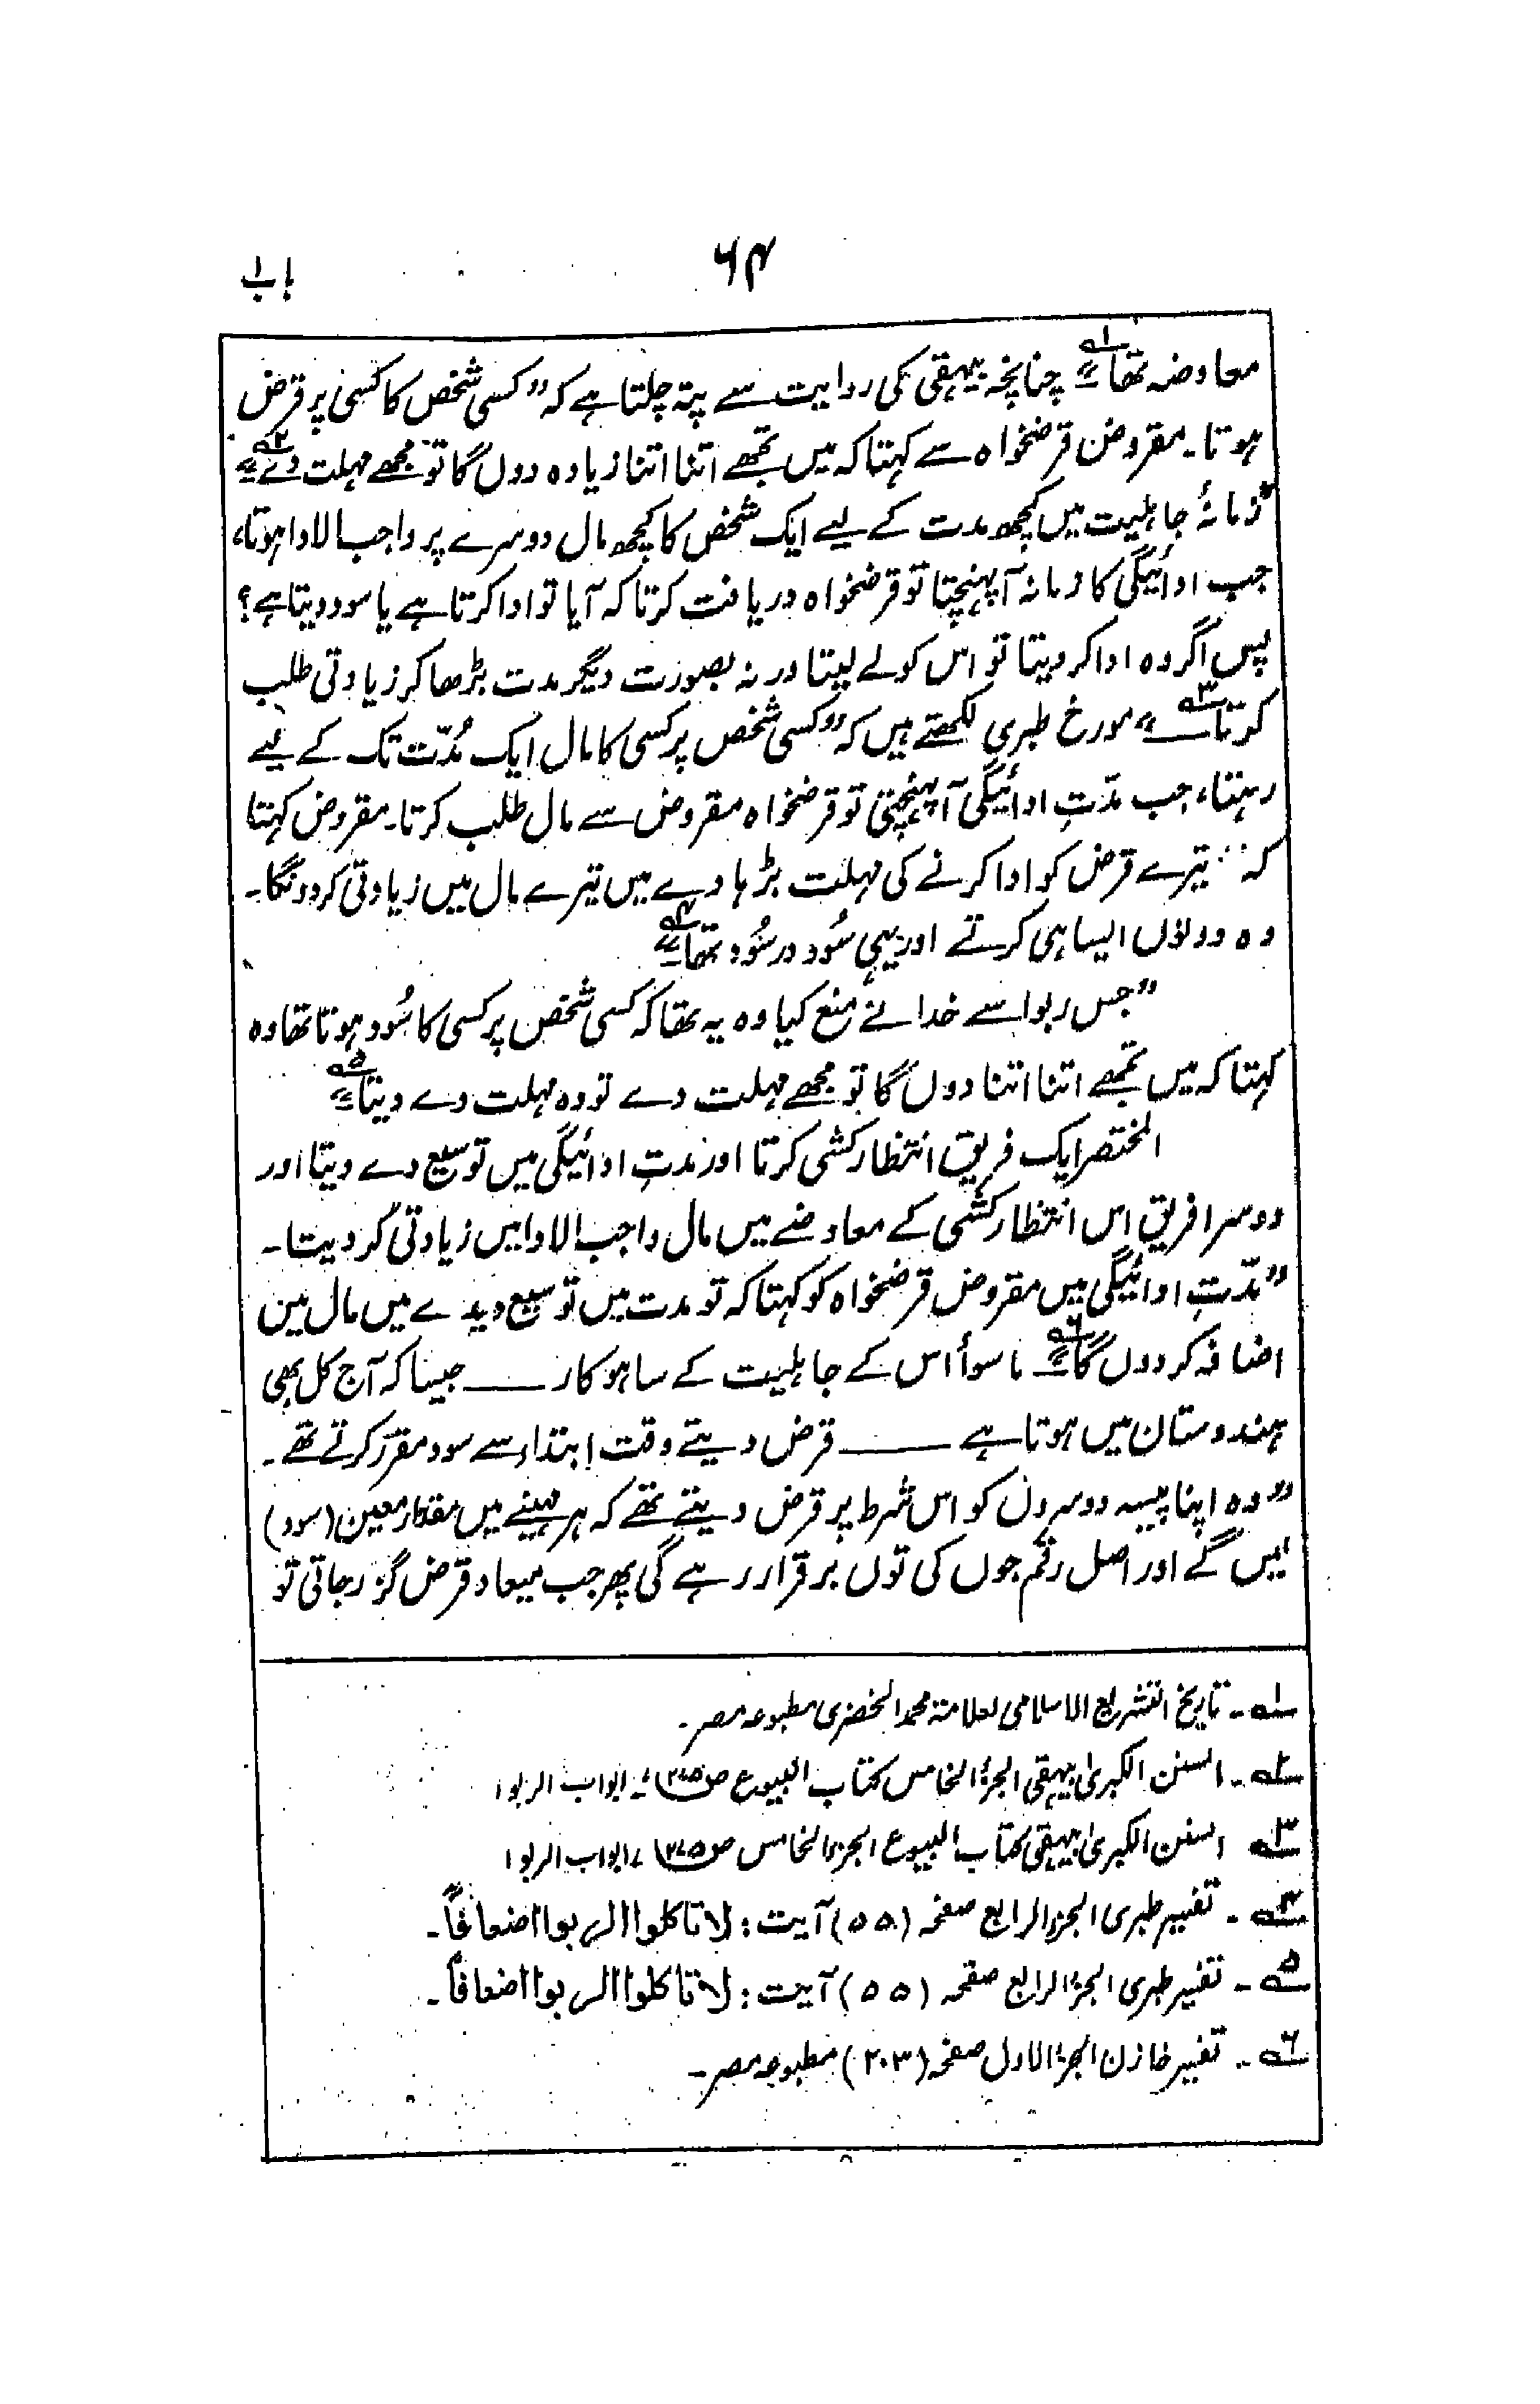 باب ۱
۶۴
معاوضہ تھا۱؎" چنانچہ بیہقی کی روایت سے پتہ چلتا ہے کہ "کسی شخص کا کسی پر قرض
ہوتا۔ مقروض قرضخواہ سے کہتا کہ میں تجھے اتنا اتنا زیادہ دوں گا تو مجھے مہلت دے۲؎"
"زمانۂ جاہلیت میں کچھ مدت کے لیے ایک شخص کا کچھ مال دوسرے پر واجب الادا ہوتا،
جب ادائیگی کا زمانہ آپہنچتا تو قرضخواہ دریافت کرتا کہ آیا تو ادا کرتا ہے یا سود دیتا ہے؟
پس اگر وہ ادا کر دیتا تو اس کو لے لیتا ورنہ بصورت دیگر مدت بڑھا کر زیادتی طلب
کرتا۳؎" مورخ طبری لکھتے ہیں کہ "کسی شخص پر کسی کا مال ایک مُدّت تک کے لیے
رہتا، جب مدّتِ ادائیگی آپہنچتی تو قرضخواہ مقروض سے مال طلب کرتا۔ مقروض کہتا
کہ تیرے قرض کو ادا کرنے کی مہلت بڑہا دے میں تیرے مال میں زیادتی کر دونگا۔
وہ دونوں ایسا ہی کرتے اور یہی سُود در سُود تھا۴؎"
"جس ربوا سے خدا نے منع کیا وہ یہ تھا کہ کسی شخص پر کسی کا سُود ہوتا تھا وہ
کہتا کہ میں تجھے اتنا اتنا دوں گا تو مجھے مہلت دے تو وہ مہلت دے دیتا۵؎"
المختصر ایک فریق انتظار کشی کرتا اور مدتِ ادائیگی میں توسیع دے دیتا اور
دوسرا فریق اس انتظار کشی کے معاوضے میں مال واجب الادا میں زیادتی کر دیتا۔
"مدّتِ ادائیگی میں مقروض قرضخواہ کو کہتا کہ تو مدت میں توسیع دیدے میں مال میں
اضافہ کر دوں گا۶؎" ماسوأ اس کے جاہلیت کے ساہوکار ــــ جیسا کہ آج کل بھی
ہندوستان میں ہوتا ہے ــــ قرض دیتے وقت ابتداء سے سود مقرر کرتے تھے۔
"وہ اپنا پیسہ دوسروں کو اس شرط پر قرض دیتے تھے کہ ہر مہینے میں مقدار معین (سود)
لیں گے اور اصل رقم جوں کی توں برقرار رہے گی پھر جب میعاد قرض گزر جاتی تو
۱؎۔ تاریخ التشریع الاسلامی لعلامۃ محمد الخضری مطبوعہ مصر۔
۲؎۔ السنن الکبریٰ بیہقی الجزء الخامس کتاب البیوع ص۲۷۵، ابواب الربوا
۳؎ السنن الکبریٰ بیہقی کتاب البیوع الجزء الخامس ص۲۷۵، ابواب الربوا
۴؎۔ تفسیر طبری الجزء الرابع صفحہ (۵۵) آیت: لا تاکلوا الربوا اضعافاً۔
۵؎۔ تفسیر طبری الجزء الرابع صفحہ (۵۵) آیت: لا تاکلوا الربوا اضعافاً۔
۶؎۔ تفسیر خازن الجزء الاول صفحہ (۲۰۳) مطبوعہ مصر۔